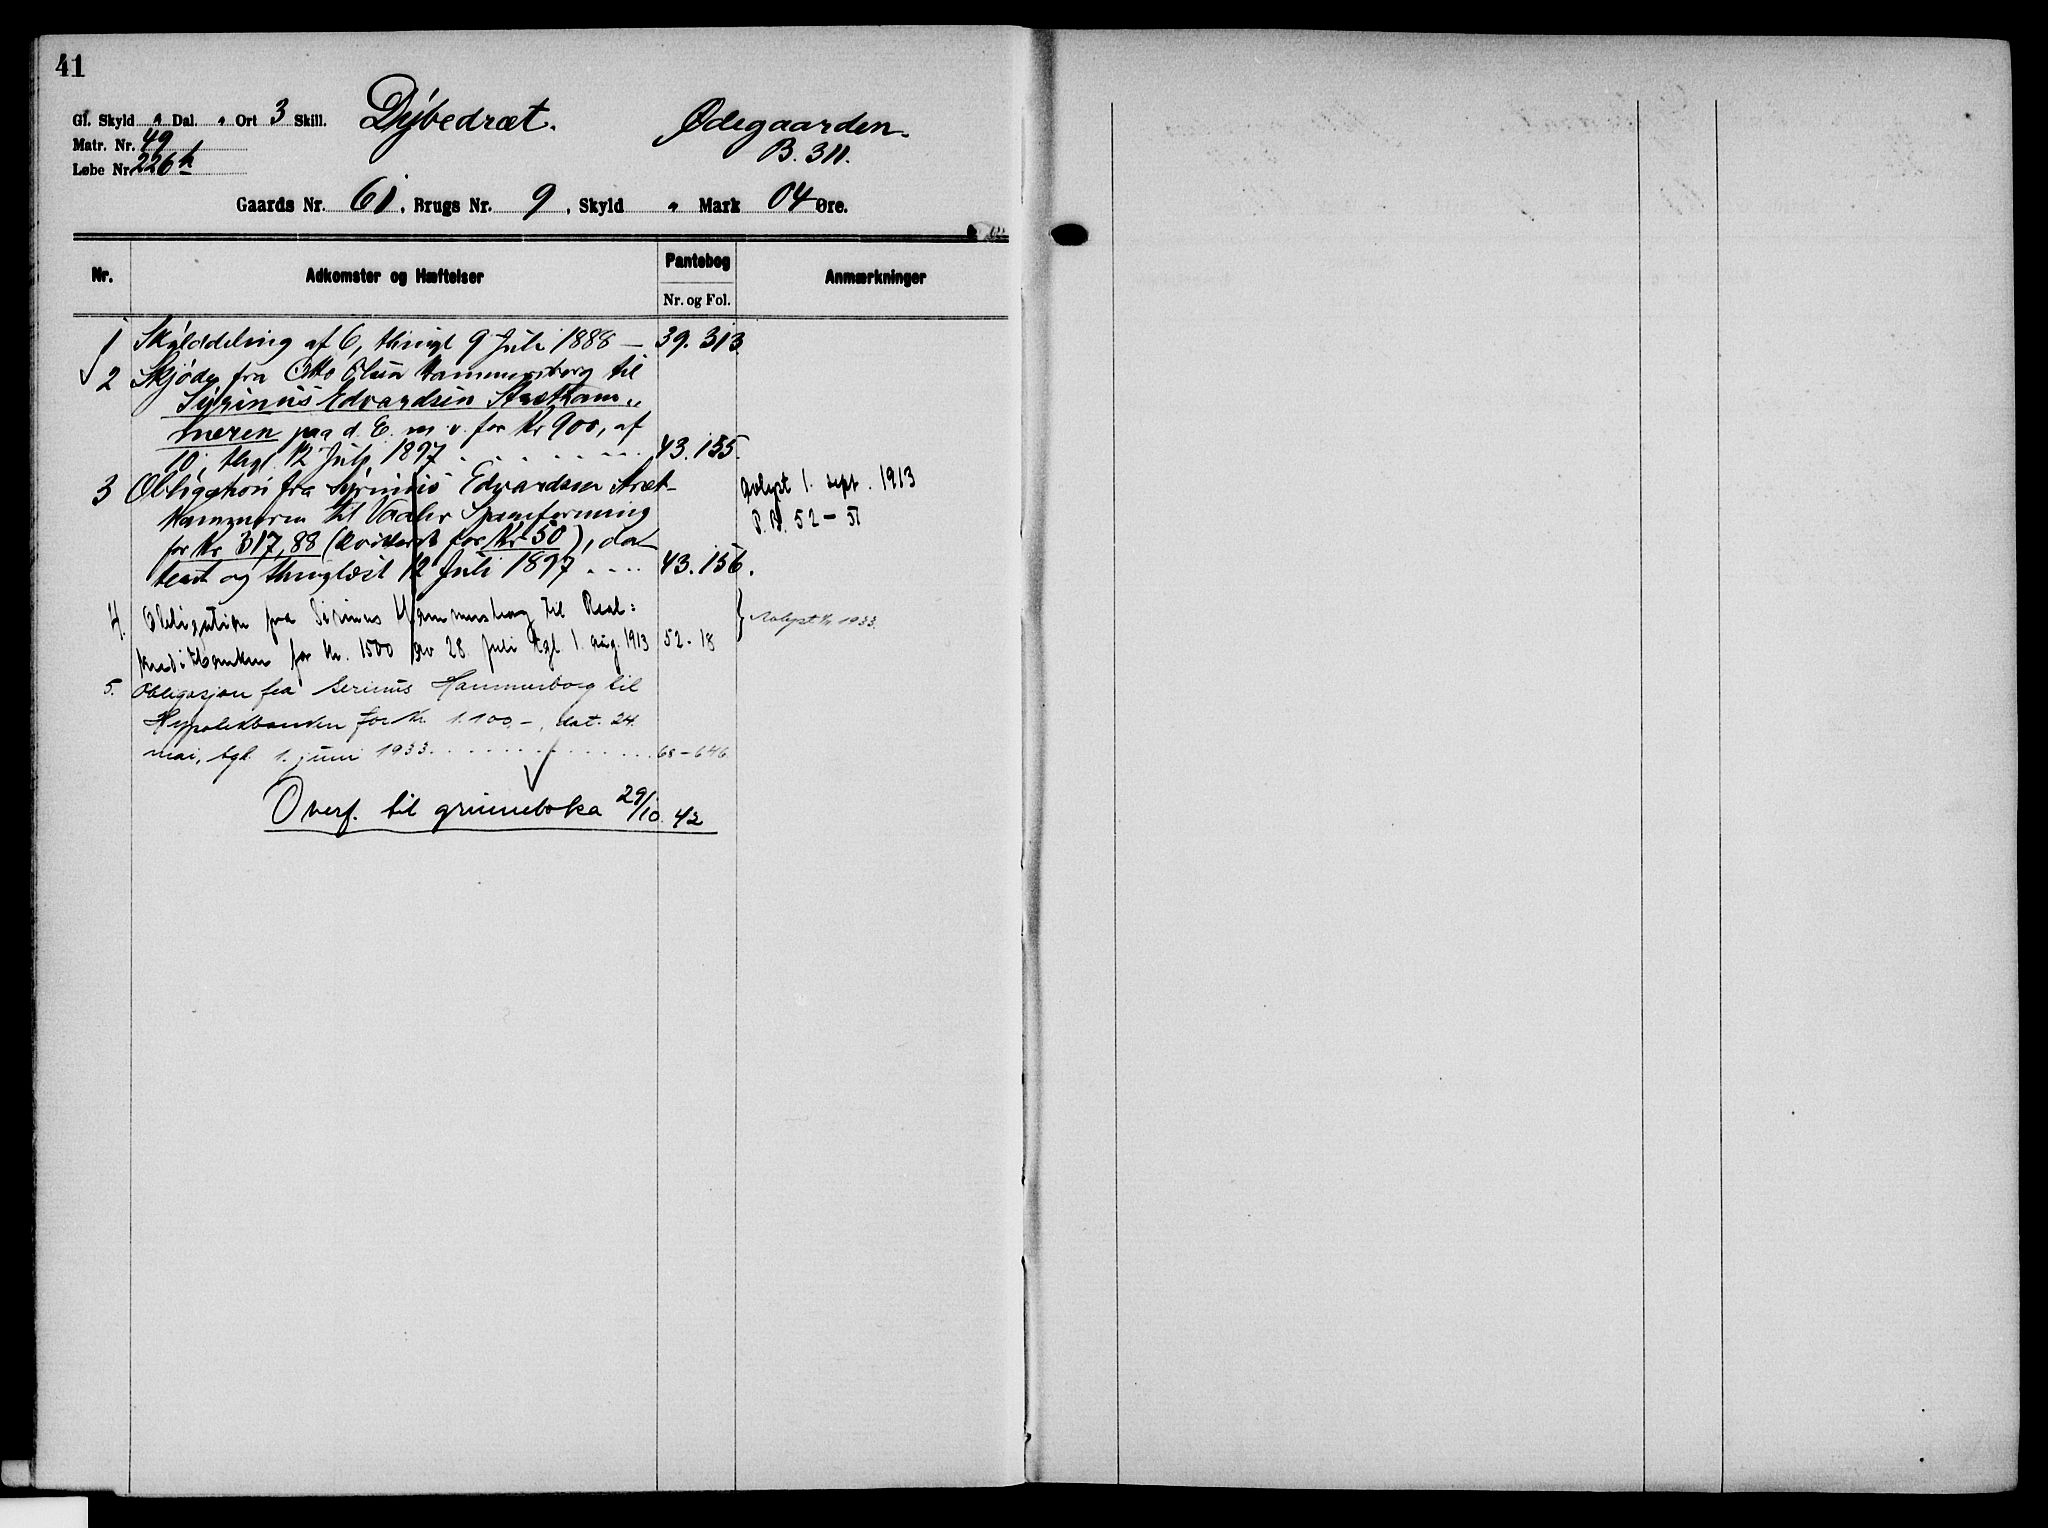 41
Gl. Skyld " Dal. " Ort 3 Skill. Dybedræt. Ødegaarden.
Matr. Nr. 49 B. 311.
Løbe Nr. 226h
Gaards Nr. 61, Brugs Nr. 9, Skyld " Mark 04 Øre.
Nr. Adkomster og Hæftelser Pantebog Anmærkninger
Nr. og Fol.
1 Skylddeling af 6, thingl 9 Juli 1888 — 39. 313.
2 Skjøde fra Otto Olsen Hammersborg til
Syrinus Edvardsen Strætkam„
meren paa d. E. m. v. for Kr 900, af
10, thgl. 12 Juli 1897 . . . . . . 43. 155.
3 Obligation fra Syrinus Edvardsen Stræt-
kammeren til Vaaler Spareforening
for Kr 317,88 (kvitteret for Kr 50), da-
teret og thinglæst 12 Juli 1897 . . . . 43. 156.
Avlyst 1. sept. 1913
P. B. 52 – 51
4. Obligation fra Sirinus Hammersborg til Real=
kreditbanken for kr. 1500 av 28 juli tgl 1. aug. 1913 52 - 18
Avlyst 1933.
5. Obligasjon fra Serinus Hammersborg til
Hypotekbanken for kr 1.100,–, dat. 24.
mai, tgl. 1. juni 1933. . . . . . . . . . 68 – 646
Overf. til grunneboka 29/10. 42